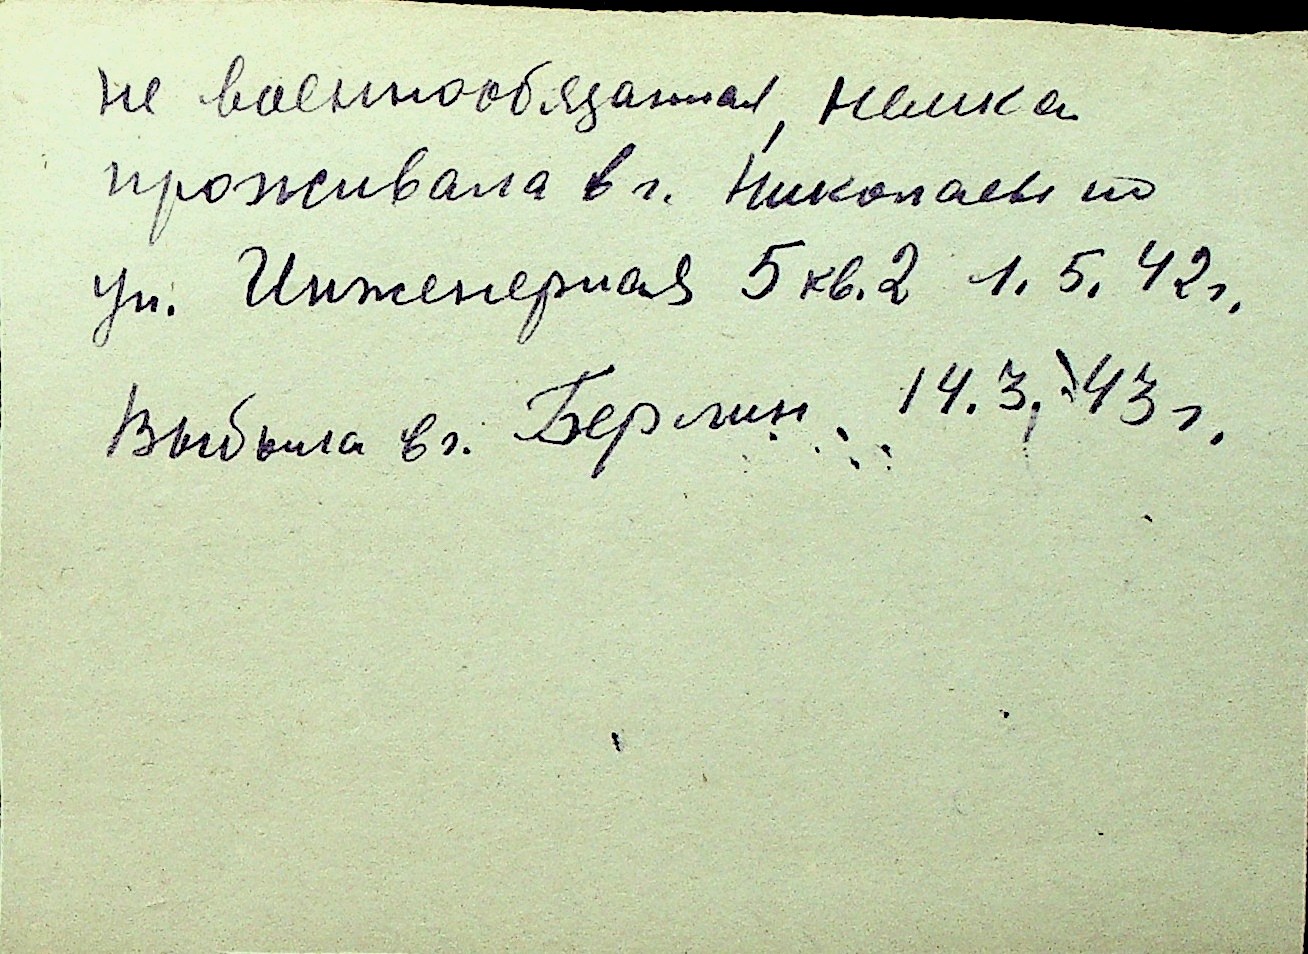 не военнообязанная, немка
проживала в г. Николаеве по
ул. Инженерная 5 кв. 2 1. 5. 42 г.
Выбыла в г. Берлин 14. 3. 43 г.